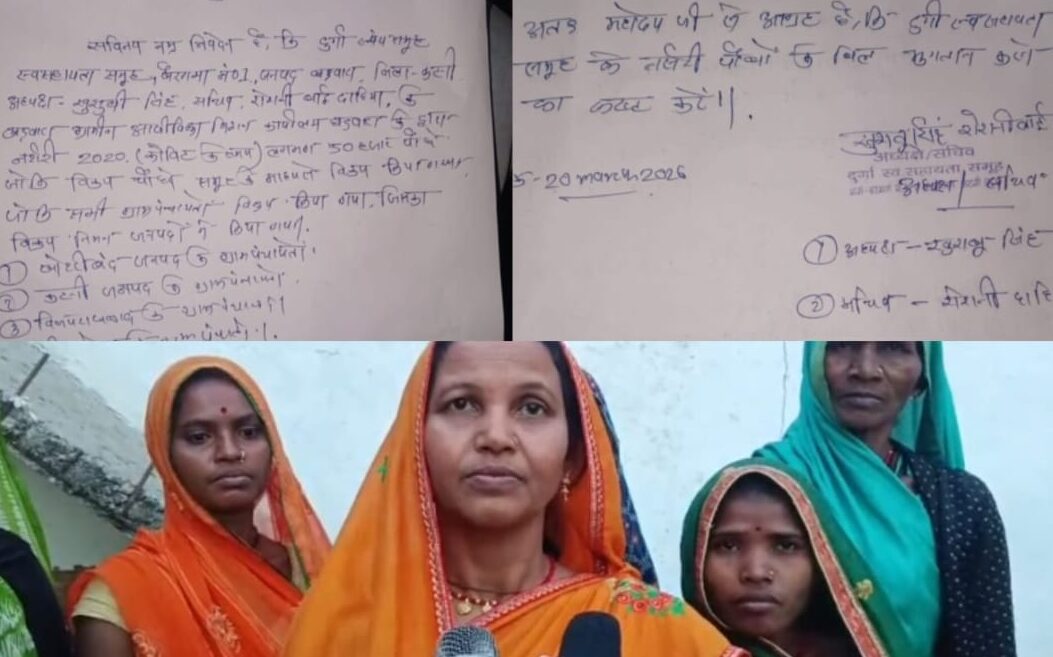 सविनय नम्र निवेदन है, कि दुर्गा स्वसहायता समूह
स्वसहायता समूह, नं०1, जनपद बड़वारा, जिला-कटनी
अध्यक्ष - खुशबू सिंह, सचिव, रोशनी बाई दाहिया, के
बड़वारा ग्रामीण आजीविका मिशन कार्यालय बड़वारा के द्वारा
नर्सरी 2020. (कोविड के समय) लगभग 50 हजार पौधे
जोकि विक्रय पौधे समूह के माध्यम से विक्रय किया गया,
जोकि सभी ग्राम पंचायतों विक्रय किया गया, जिसका
विक्रय निम्न जनपदों में किया गया.
① जनपद के ग्राम पंचायतों.
② कटनी जनपद के ग्राम पंचायतों.
③ विजयराघवगढ़ के ग्राम पंचायतों।
अतः महोदय जी से आग्रह है, कि दुर्गा स्वसहायता
समूह के नर्सरी पौधों के बिल भुगतान करने
का कष्ट करें।।
20 march 2026
खुशबू सिंह रोशनी बाई
अध्यक्ष/सचिव
दुर्गा स्व सहायता समूह
अध्यक्ष / सचिव
① अध्यक्ष - खुशबू सिंह
② सचिव - रोशनी